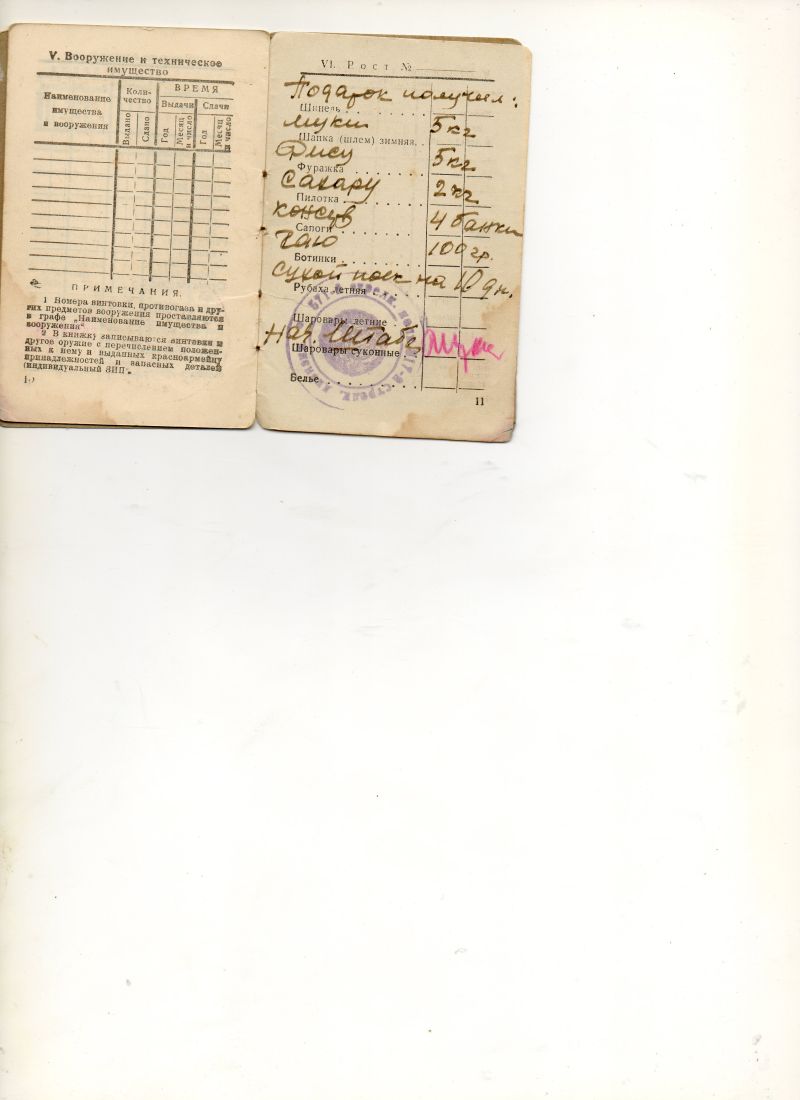 V. Вооружение и техническое
имущество
Наименование
имущества
и вооружения
Коли-
чество
ВРЕМЯ
Выдачи
Сдачи
Выдано
Сдано
Год
Месяц
и число
Год
Месяц
и число
ПРИМЕЧАНИЯ.
1 Номера винтовки, противогаза и дру-
гих предметов вооружения проставляются
в графе „Наименование имущества и
вооружения“
2 В книжку записываются винтовки и
другое оружие с перечислением положен-
ных к нему и выданных красноармейцу
принадлежностей и запасных деталей
(индивидуальный ЗИП).
VI. Рост №
Подарок получил:
Шинель
муки 5 кг
Шапка (шлем) зимняя
Рису 5 кг
Фуражка
Сахару 2 кг
Пилотка
консув 4 банки
Сапоги
Чаю 100 гр.
Ботинки
Сухой поек на 10 дн.
Рубаха летняя
Шаровары летние
Нач. Штаба
Шаровары суконные
Белье
11